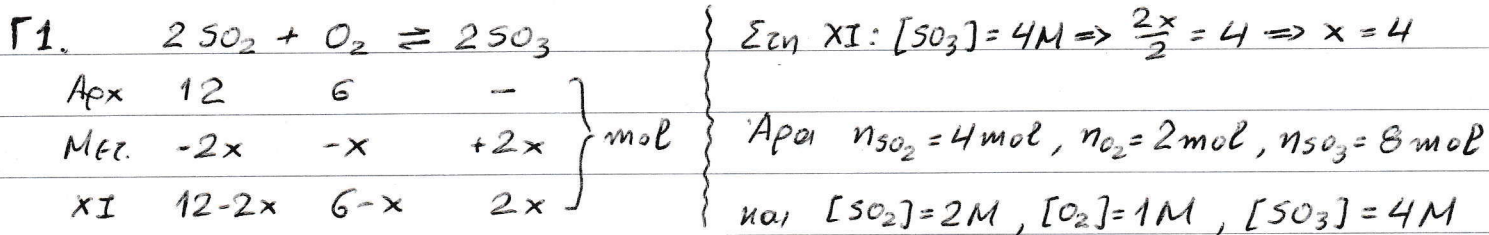 Γ1. 2 SO₂ + O₂ ⇌ 2SO₃
Αρχ 12 6 -
Μετ. -2x -x +2x mol
ΧΙ 12-2x 6-x 2x
Στη ΧΙ: [SO₃] = 4M => 2x/2 = 4 => x = 4
Άρα nSO₂ = 4 mol, nO₂ = 2 mol, nSO₃ = 8 mol
και [SO₂] = 2M, [O₂] = 1M, [SO₃] = 4M